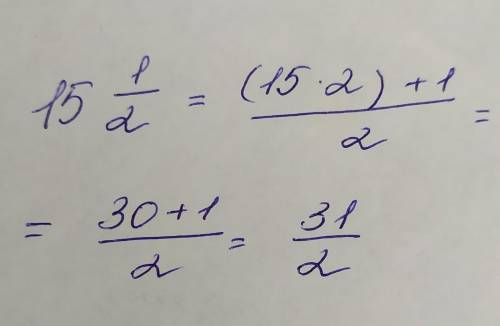 15 1/2 = ((15·2)+1)/2 =
= (30+1)/2 = 31/2